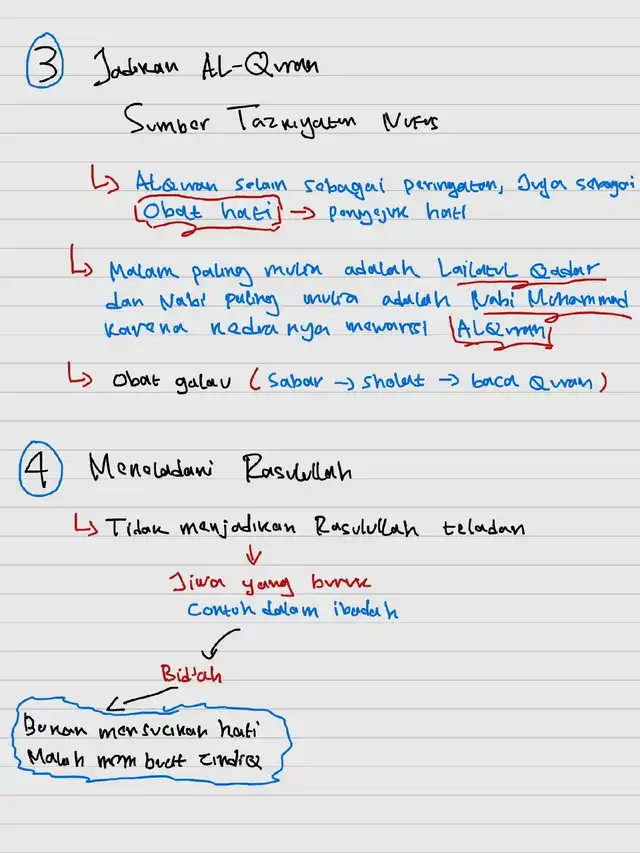 3 Jadikan AL-Quran
Sumber Tazkiyatun Nufus
ALQuran selain sebagai peringatan, Juga sebagai
Obat hati → penyejuk hati
Malam paling mulia adalah Lailatul Qadar
dan Nabi paling mulia adalah Nabi Muhammad
karena keduanya mewarisi ALQuran
Obat galau (Sabar → sholat → baca Quran)
4 Meneladani Rasulullah
Tidak menjadikan Rasulullah teladan
Jiwa yang buruk
Contuh dalam ibadah
Bid'ah
Bukan mensucikan hati
Malah membuat zindiq